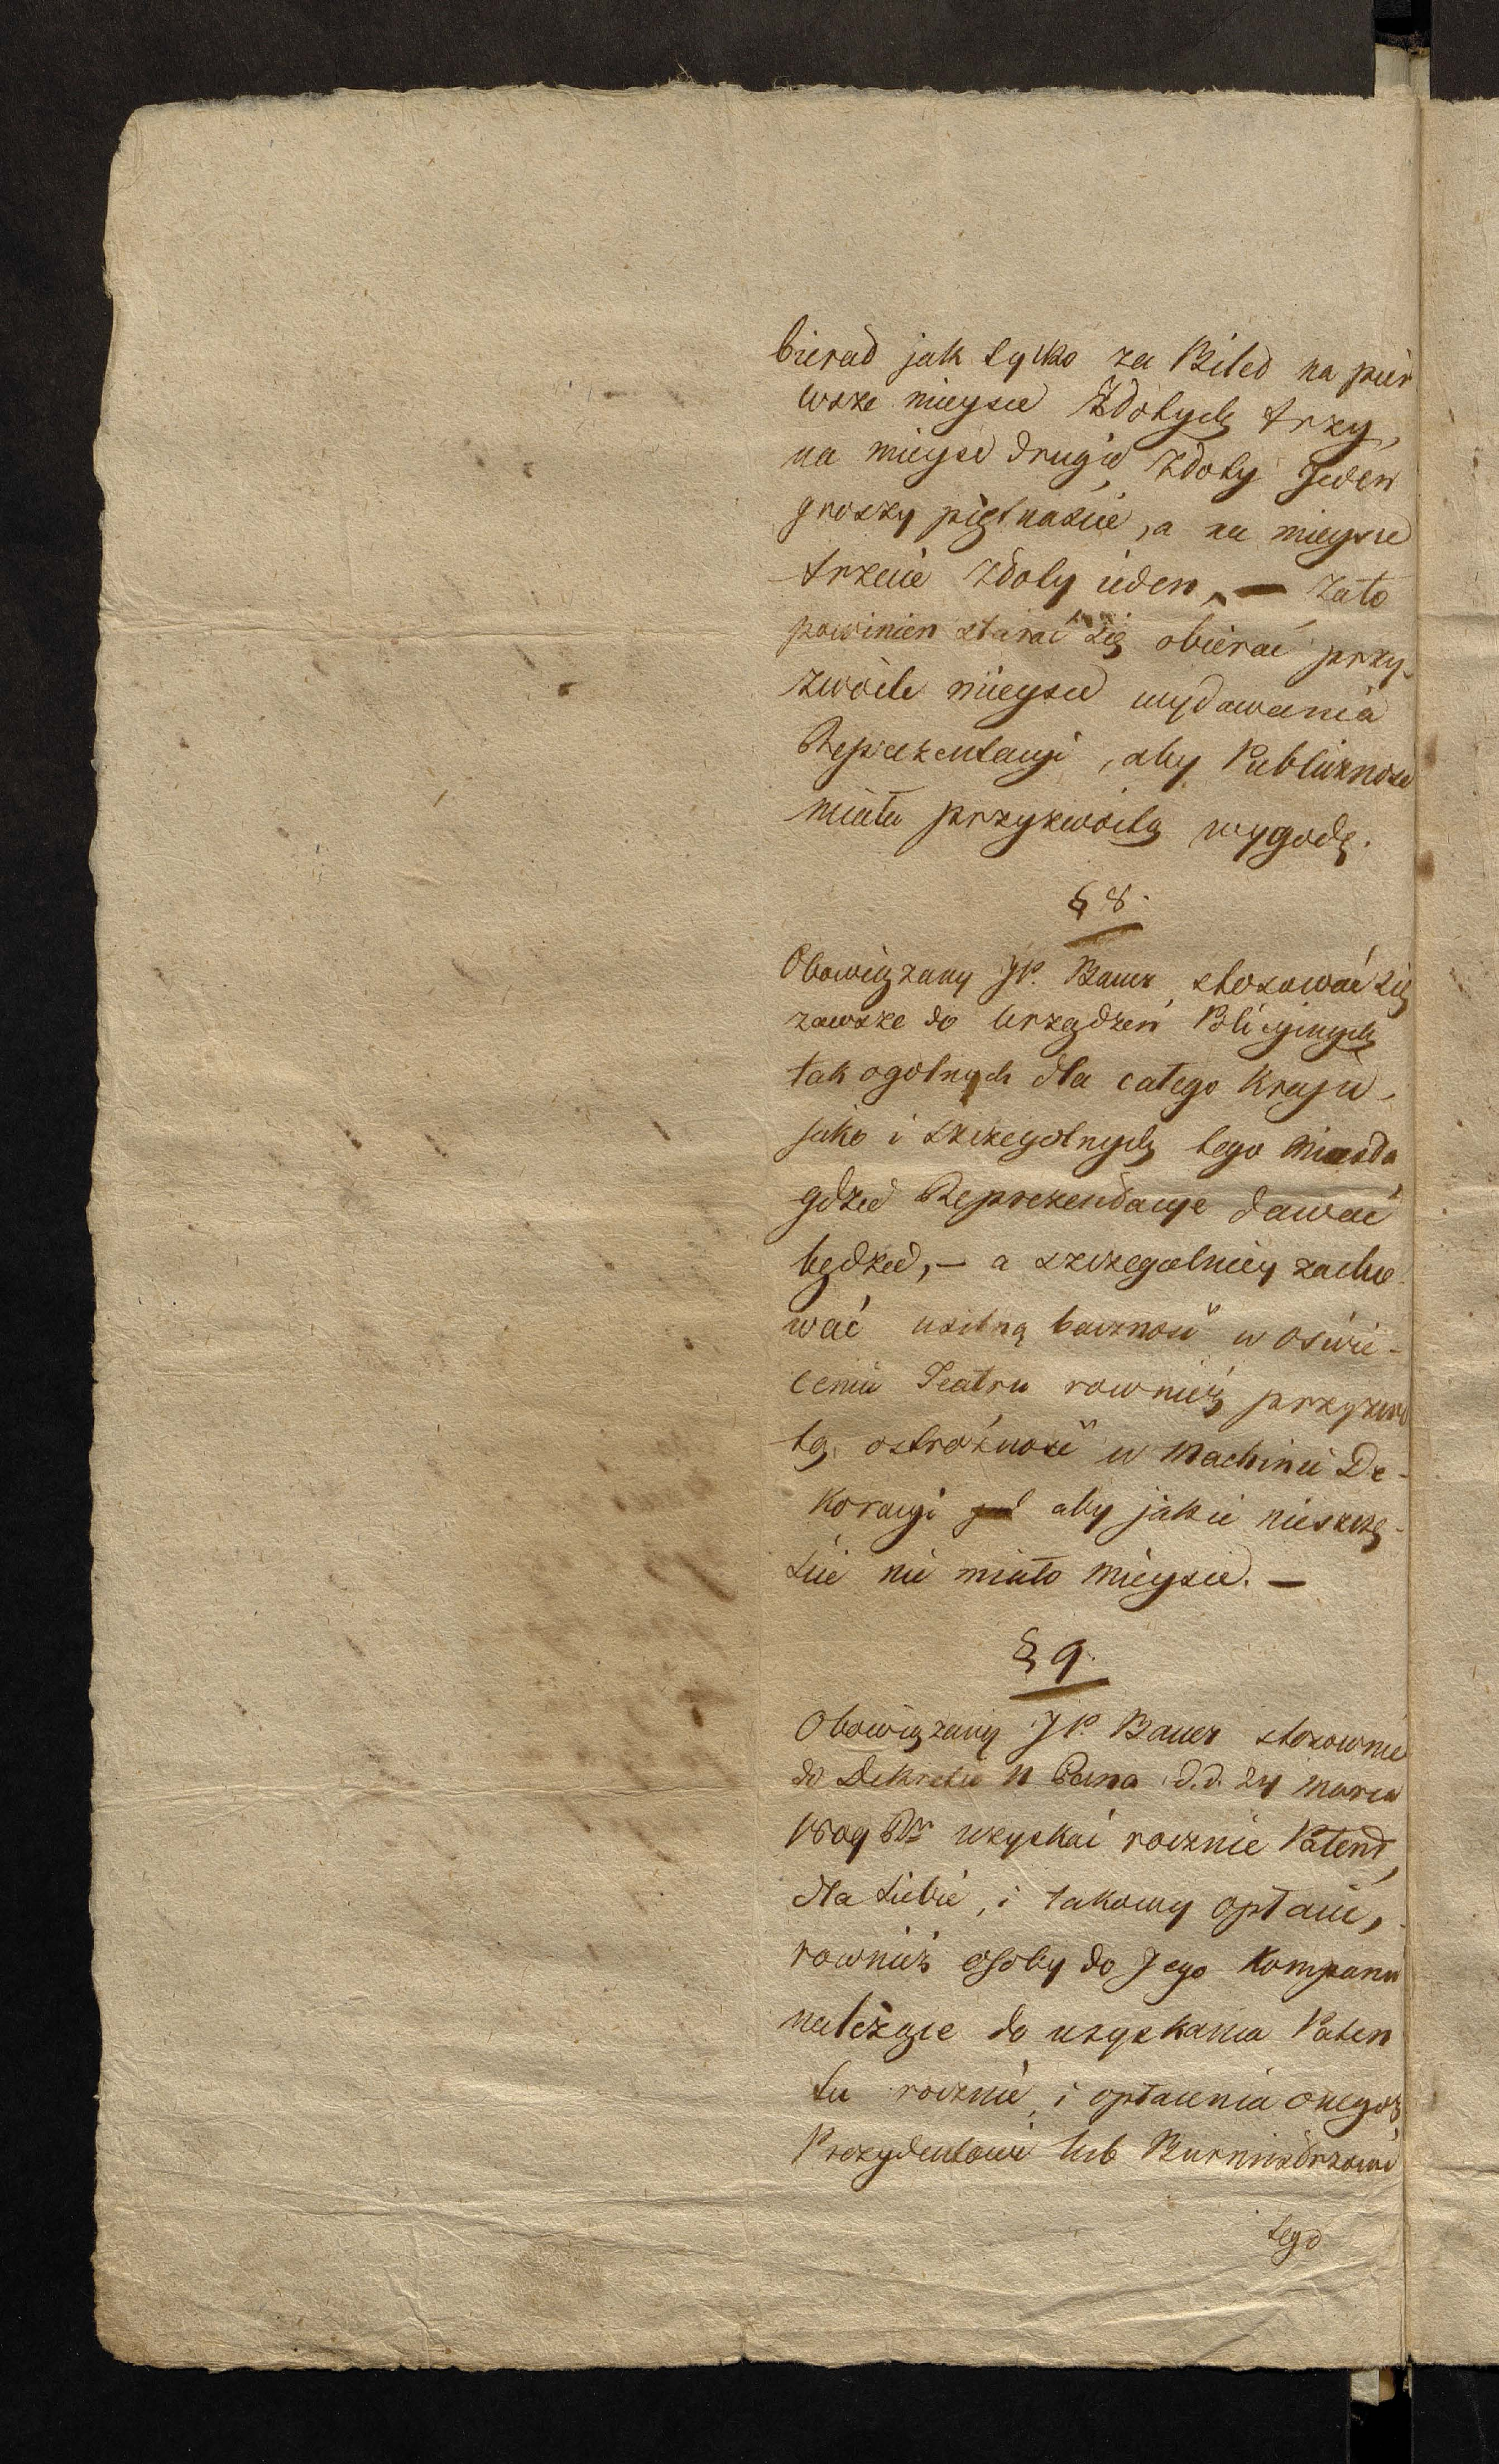 bierać jak tylko za Bilet na pier
wsze mieysce Złotych trzy,
na mieysc drugie złoty Jeden
groszy piętnaście, a na mieysce
trzecie złoty ieden, — zato
powinien starać się obierać przy-
zwoite mieysce wydawania
Reprezentacyi, aby Publiczność
miała przyzwoitą wygodę.
§ 8.
Obowiązany JP. Bauer stosować się
zawsze do urządzeń Policyinych
tak ogolnych dla całego Kraju,
jako i szczegolnych tego Miasta
gdzie Reprezentacye dawać
będzie, — a szczegolniey zacho-
wać usilną baczność w oświe-
ceniu Teatru rownież przyzwoi
tą ostrożność w Machinie De-
koracyi aby jakie nieszczę-
ście nie miało mieysce. —
§ 9.
Obowiązany JP. Bauer stosownie
do Dekretu N Pana d.d. 24 Marca
1809 Rr uzyskać rocznie Patent,
dla siebie, i takowy opłacić,
rownież osoby do Jego Kompanii
należące do uzyskania Paten
tu rocznie, i opłacenia onegoż
Prezydentowi lub Burmistrzowi
tego